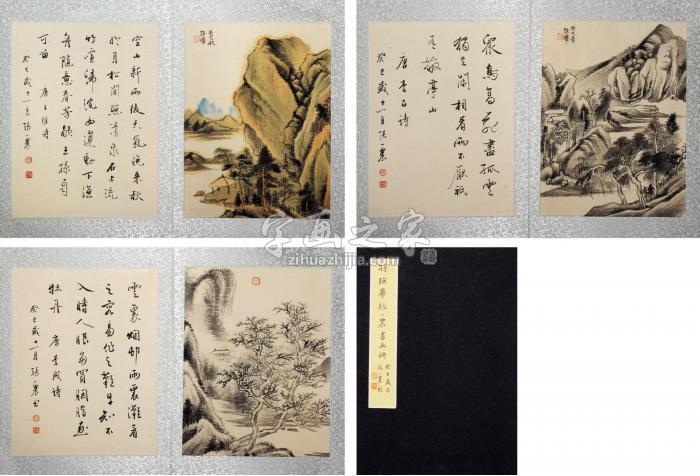 空山新雨後天氣晚來秋
明月松間照清泉石上流
竹喧歸浣女蓮動下漁
舟隨意春芳歇王孫自
可留 唐王維詩
癸巳歲十一月張一農
眾鳥高飛盡孤雲
獨去閑相看兩不厭祇
有敬亭山
唐李白詩
癸巳歲十一月張一農
字画之家
zihuazhijia.com
雲裏烟邨雨裏灘看
之容易作之難早知不
入時人眼多買胭脂畫
牡丹 唐李成詩
癸巳歲十一月張一農書
張一農書画冊